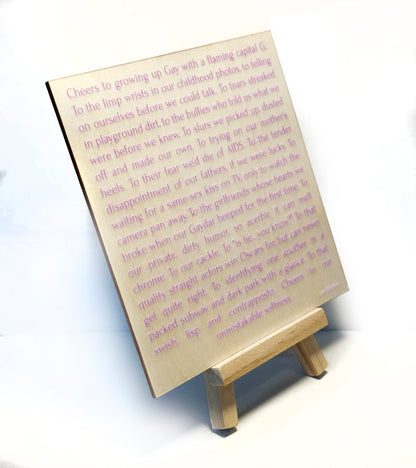 Cheers to growing up Gay with a flaming capital G.
To the limp wrists in our childhood photos, to telling
on ourselves before we could talk. To tears streaked
in playground dirt, to the bullies who told us what we
were before we knew. To slurs we picked up, dusted
off and made our own. To trying on our mother's
heels. To their fear we'd die of AIDS. To the tender
disappointment of our fathers, if we were lucky. To
waiting for a same-sex kiss on TV only to watch the
camera pan away. To the girlfriends whose hearts we
broke when our Gaydar beeped for the first time. To
our private, dirty humor, so acerbic it can melt
chrome. To our cackle. To "is he...you know?" To that
quality straight actors win Oscars for, but can never
get quite right. To identifying one another in a
packed subway and dark park with a glance. To that
swish, lisp and contrapposto. Cheers to our
unmistakable softness.